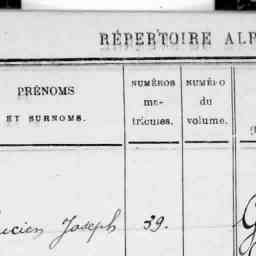 RÉPERTOIRE ALP
PRÉNOMS
ET SURNOMS.
NUMÉROS
ma-
tricules.
NUMÉRO
du
volume.
Lucien Joseph 39.